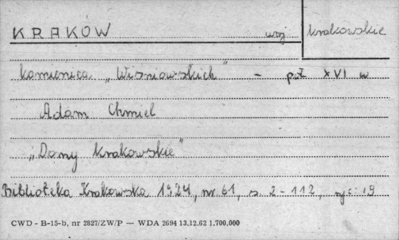 KRAKÓW woj krakowskie
kamienica „Wiśniowskich" – poł XVI w
Adam Chmiel
„Domy krakowskie"
Biblioteka Krakowska 1924, nr. 61, s. 2-112, ryc: 19
CWD - B-15-b, nr 2827/ZW/P — WDA 2694 13.12.62 1.700.000